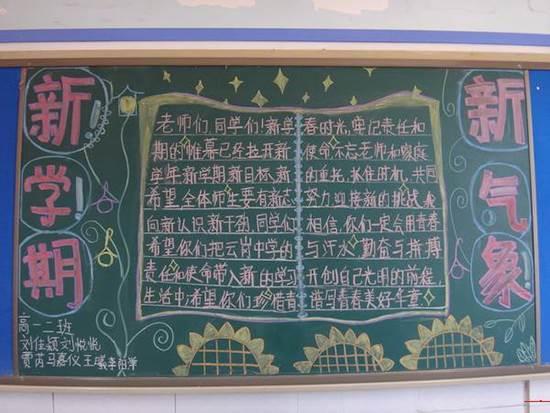 新
学!
期
老师们,同学们!新学
期的帷幕已经拉开新
学年新学期新目标,新的
希望.全体师生要有新志
向新认识新干劲.同学们
希望你们把云岗中学的
责任和使命带入新的学习
生活中希望你们珍惜青
春时光,牢记责任和
使命不忘老师和家庭
的重托,抓住时机,共同
努力迎接新的挑战.我
相信,你们一定会用青春
与汗水,勤奋与拼搏
开创自己光明的前程,
谱写青春美好年章
新
气
象!
高一二班
刘佳颖刘悦悦
贾芮马嘉仪王曦李阳